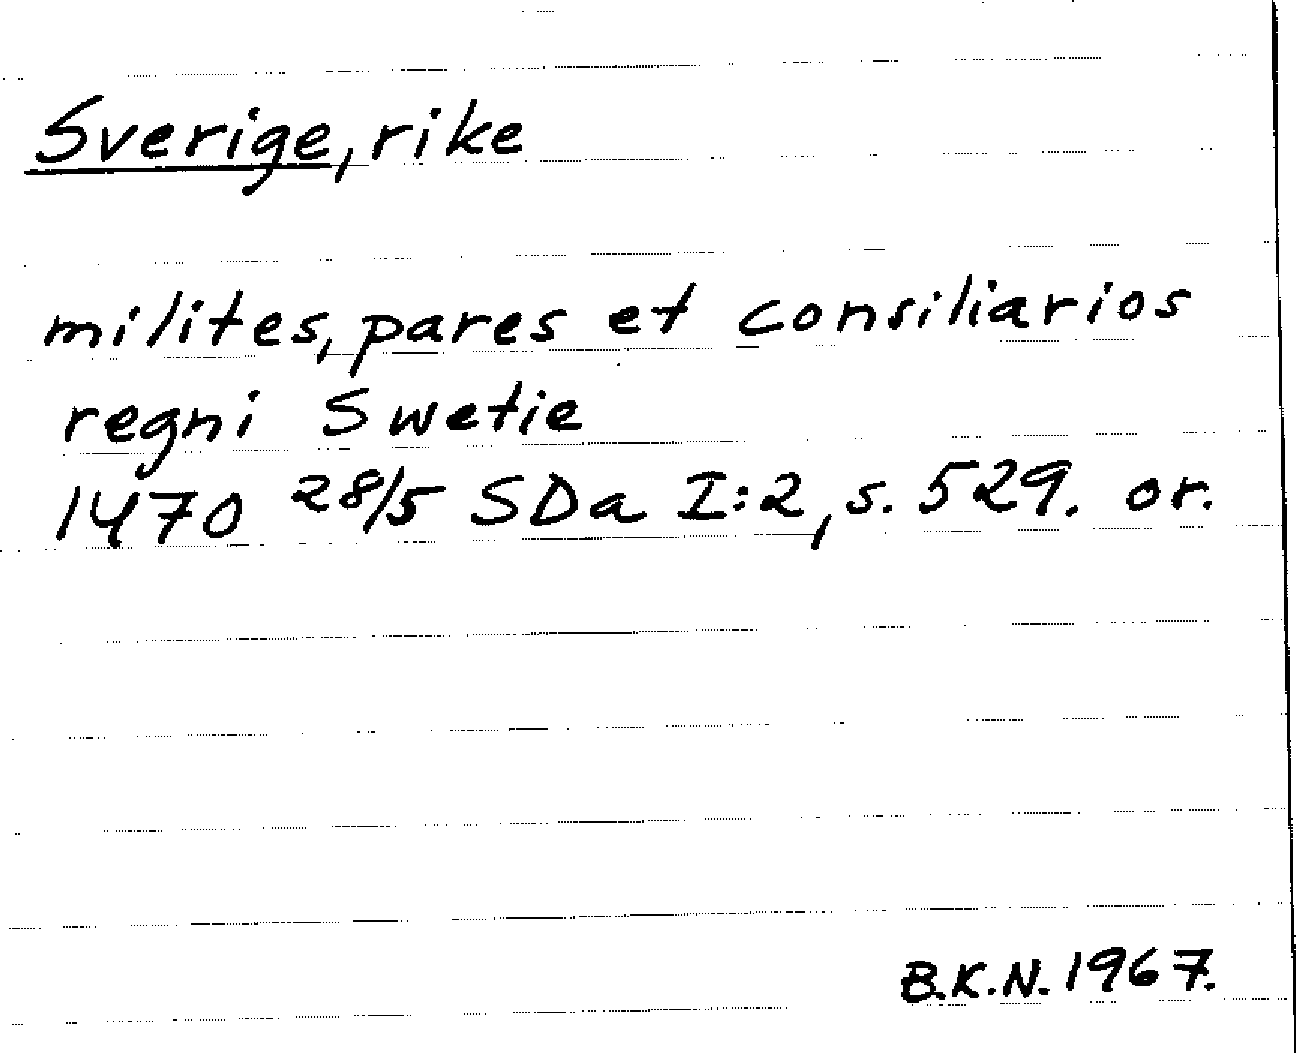 Sverige, rike
milites, pares et consiliarios
regni Swetie
1470 28/5 SDa I:2, s. 529. or.
B.K.N. 1967.